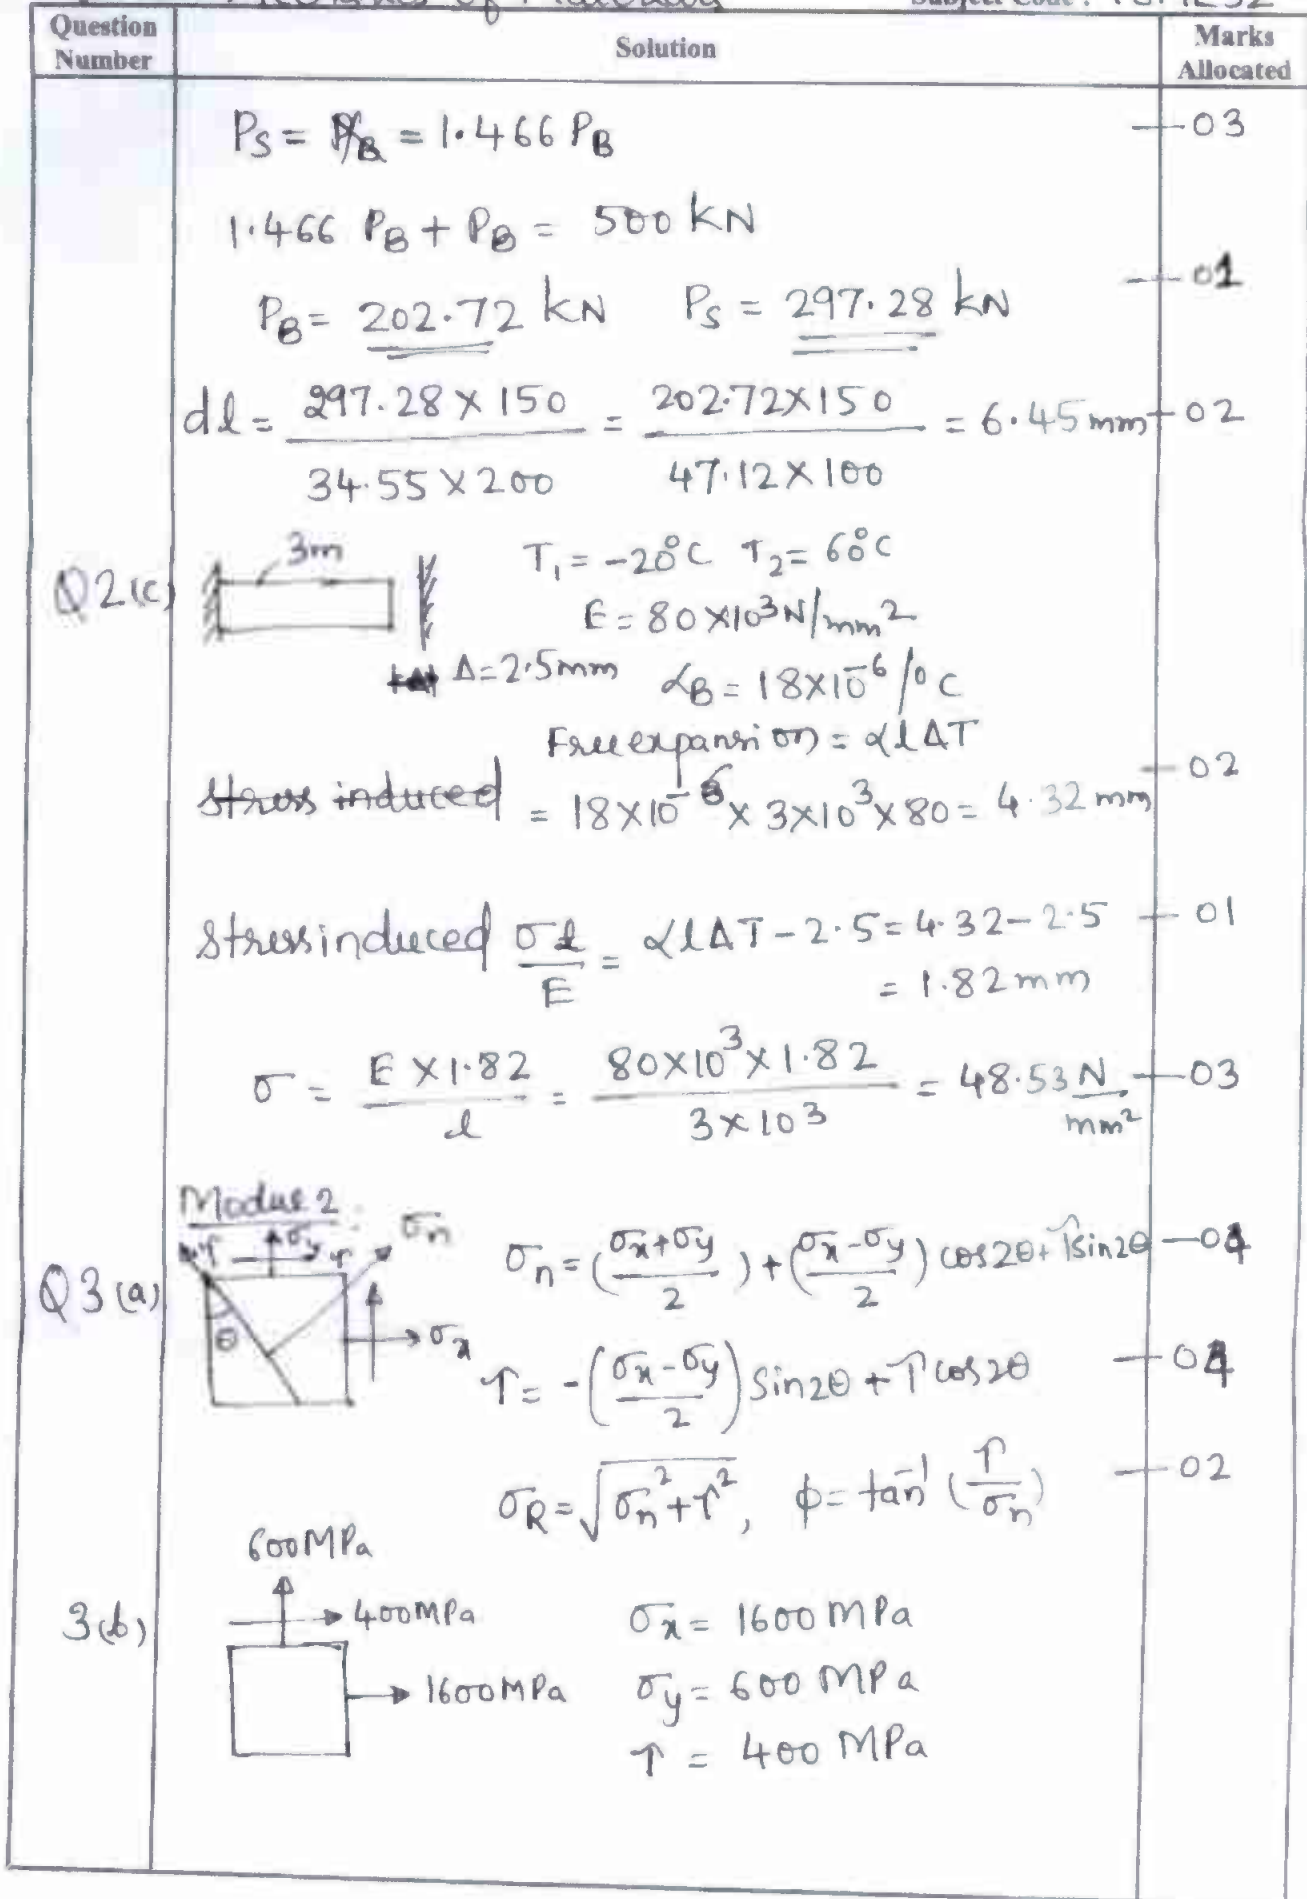 Question Number
Solution
Marks Allocated
P_S = P/B = 1.466 P_B — 03
1.466 P_B + P_B = 500 kN
P_B = 202.72 kN P_S = 297.28 kN — 01
dl = (297.28 × 150)/(34.55 × 200) = (202.72 × 150)/(47.12 × 100) = 6.45 mm — 02
Q2(c)
3m
T₁ = -20°C T₂ = 60°C
E = 80×10³ N/mm²
Δ = 2.5mm α_B = 18×10⁻⁶ /°C
Free expansion = αlΔT
Stress induced = 18×10⁻⁶ × 3×10³ × 80 = 4.32 mm — 02
Stress induced σl/E = αlΔT - 2.5 = 4.32 - 2.5 — 01
= 1.82 mm
σ = (E × 1.82)/l = (80×10³ × 1.82)/(3×10³) = 48.53 N/mm² — 03
Q3(a)
Modue 2
τ σy τ σn
θ σx
σn = ((σx+σy)/2) + ((σx-σy)/2) cos2θ + τ sin2θ — 04
τ = -((σx-σy)/2) sin2θ + τ cos2θ — 04
σR = √(σn² + τ²), φ = tan⁻¹(τ/σn) — 02
3(b)
600MPa
400MPa σx = 1600 MPa
1600MPa σy = 600 MPa
τ = 400 MPa